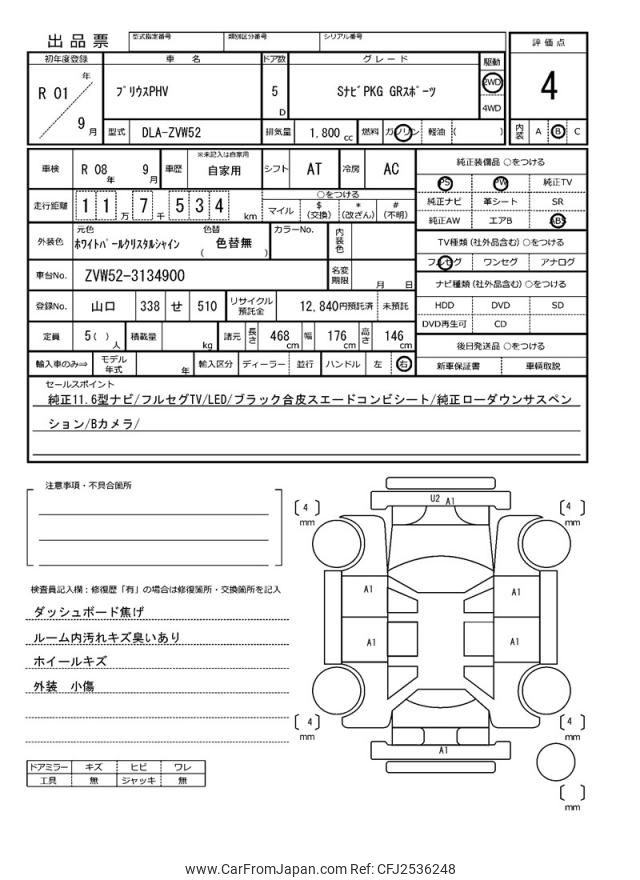 出品票 型式指定番号 類別区分番号 シリアル番号 評価点
初年度登録 車名 ドア数 グレード 駆動
R 01 年 9 月 プリウスPHV 5 D SナビPKG GRスポーツ 2WD 4WD 4
型式 DLA-ZVW52 排気量 1,800 cc 燃料 ガソリン 軽油 ( ) 内装 A B C
車検 R 08 年 9 月 車歴 ※未記入は自家用 自家用 シフト AT 冷房 AC 純正装備品 ○をつける
PS PW 純正TV
走行距離 1 1 万 7 千 5 3 4 km ○をつける マイル $ (交換) * (改ざん) # (不明) 純正ナビ 革シート SR
純正AW エアB ABS
外装色 元色 ホワイトパールクリスタルシャイン 色替 ( 色替無 ) カラーNo. 内装色 TV種類 (社外品含む) ○をつける
フルセグ ワンセグ アナログ
車台No. ZVW52-3134900 名変期限 月 日 ナビ種類 (社外品含む) ○をつける
登録No. 山口 338 せ 510 リサイクル預託金 12,840円預託済 未預託 HDD DVD SD
DVD再生可 CD
定員 5( ) 人 積載量 kg 諸元 長さ 468 cm 幅 176 cm 高さ 146 cm 後日発送品 ○をつける
輸入車のみ⇒ モデル年式 年 輸入区分 ディーラー 並行 ハンドル 左 右 新車保証書 車輌取説
セールスポイント
純正11.6型ナビ/フルセグTV/LED/ブラック合皮スエードコンビシート/純正ローダウンサスペン
ション/Bカメラ/
注意事項・不具合箇所
検査員記入欄:修復歴「有」の場合は修復箇所・交換箇所を記入
ダッシュボード焦げ
ルーム内汚れキズ臭いあり
ホイールキズ
外装 小傷
ドアミラー キズ ヒビ ワレ
工具 無 ジャッキ 無
U2 A1
[ 4 ] mm [ 4 ] mm
A1 A1
A1 A1
[ 4 ] mm [ 4 ] mm
A1
[ ] mm
www.CarFromJapan.com Ref: CFJ2536248